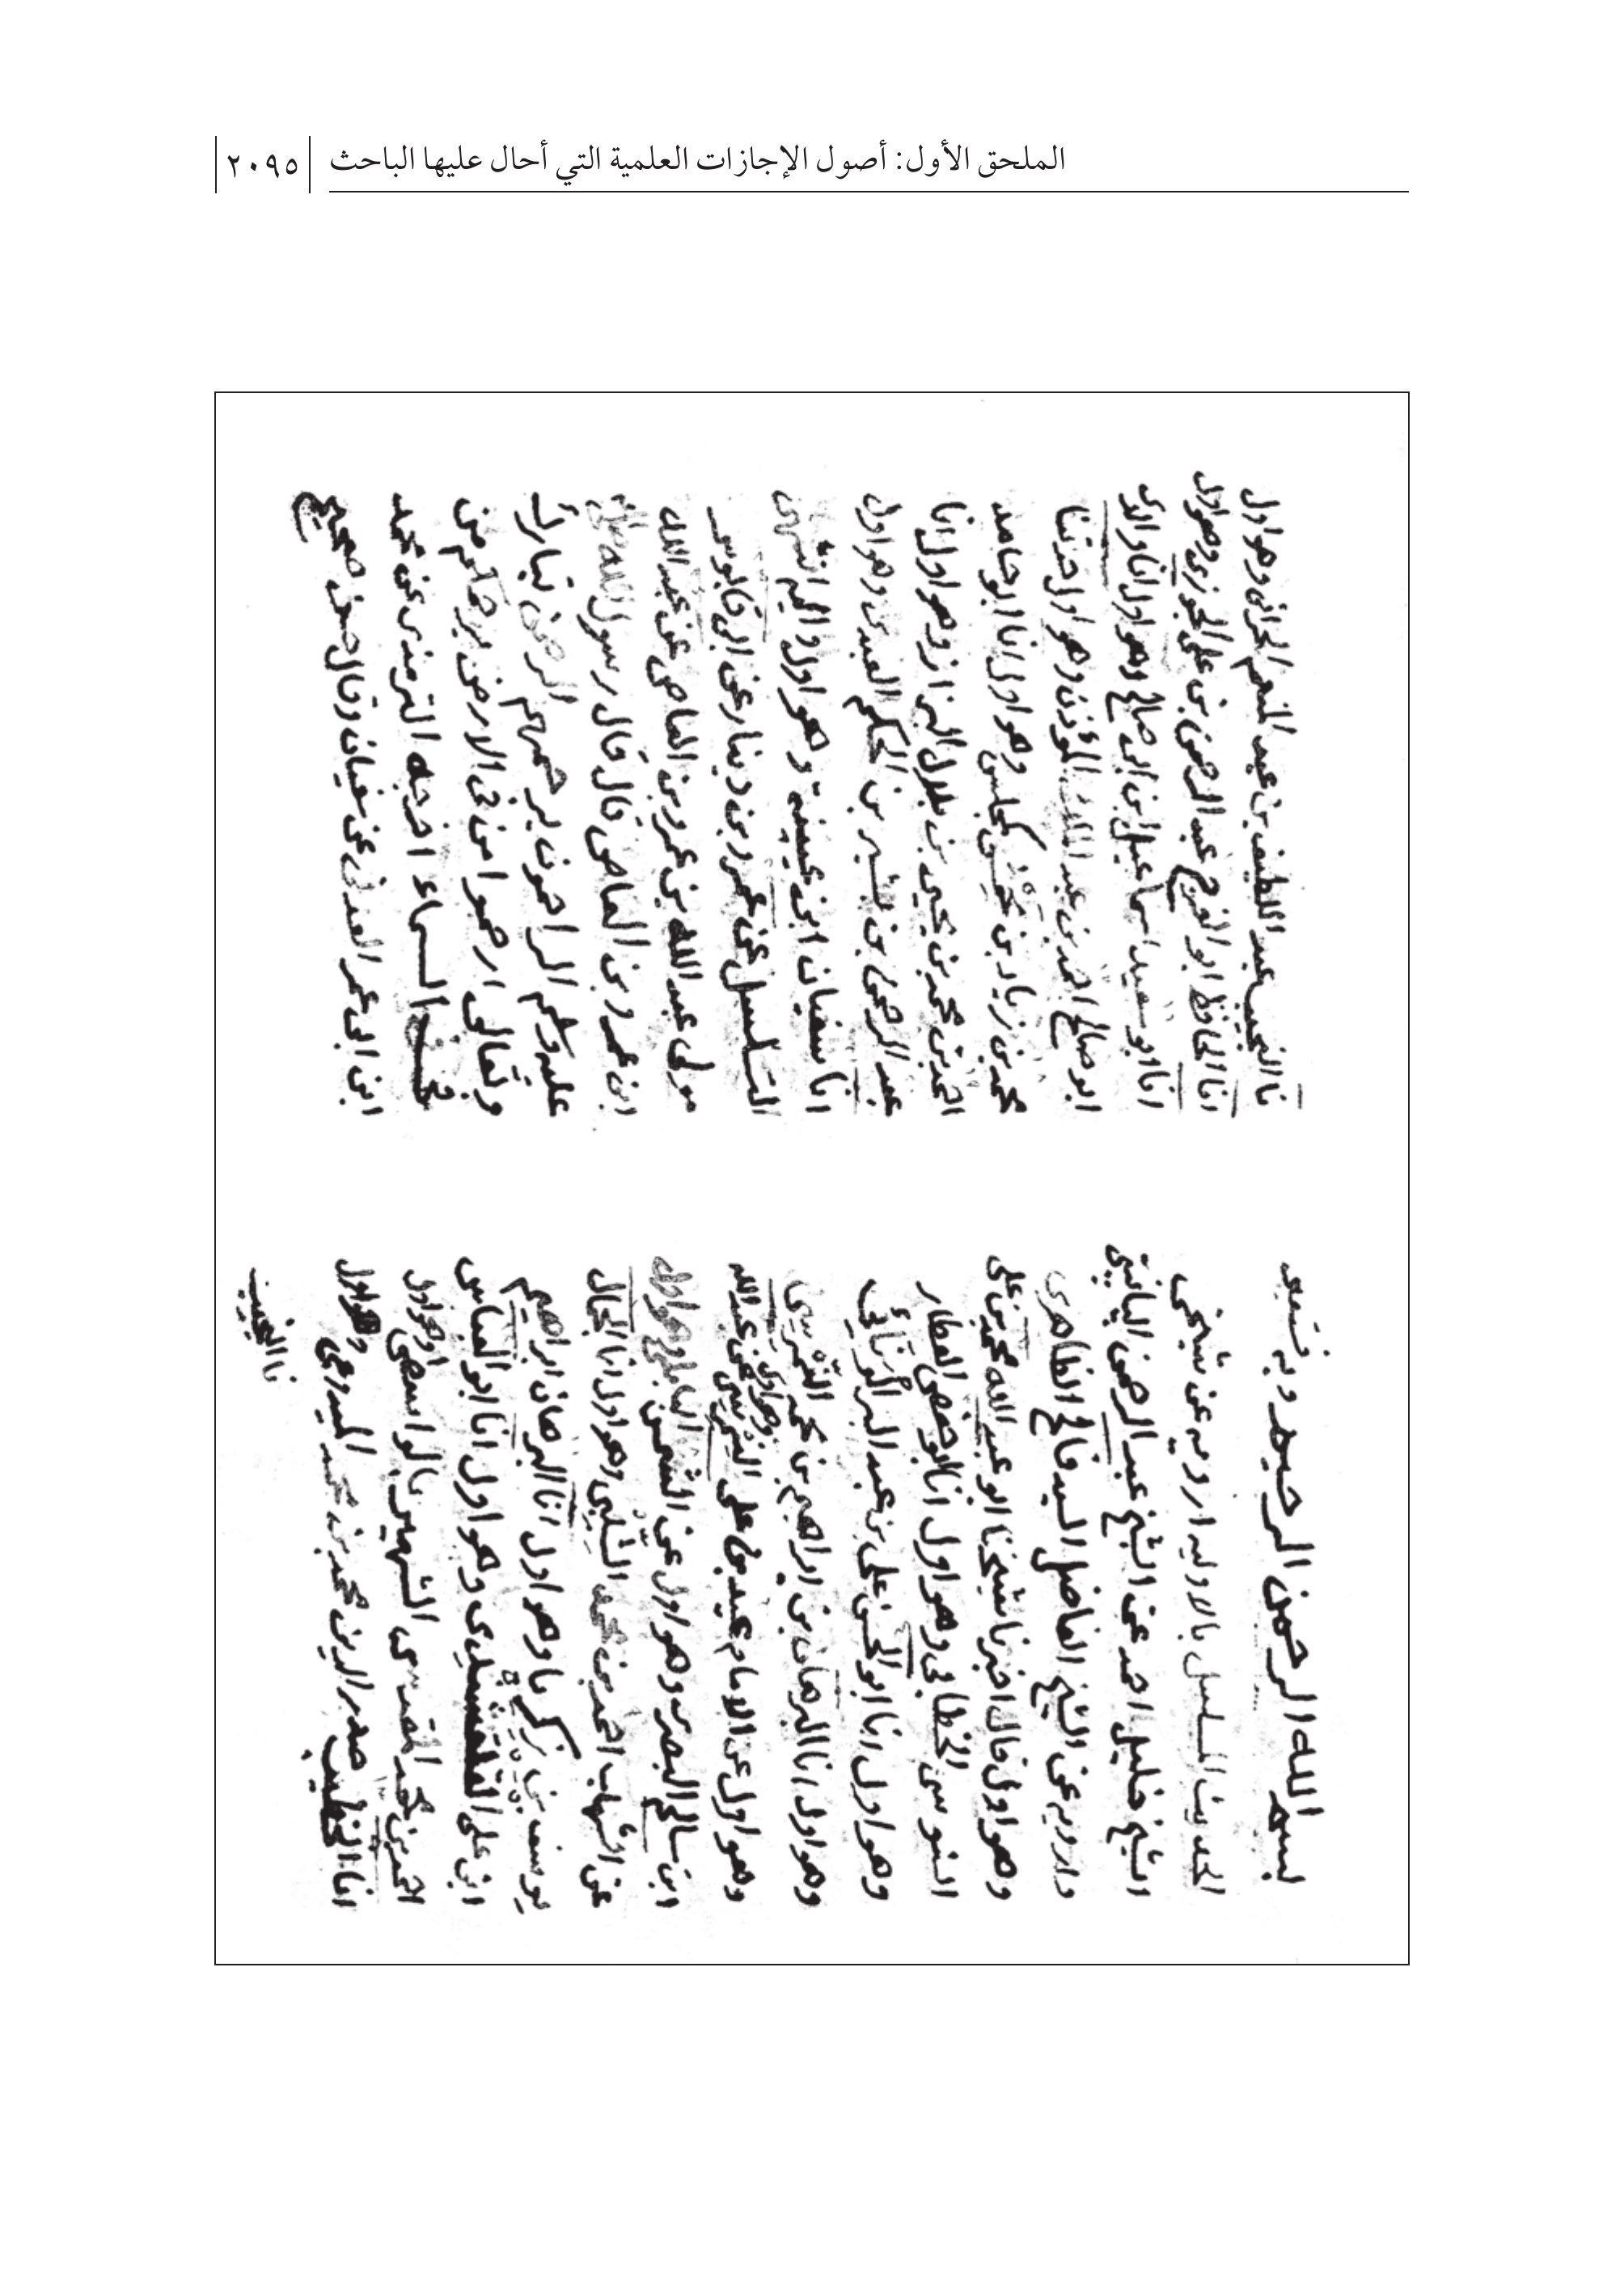 الملحق الأول: أصول الإجازات العلمية التي أحال عليها الباحث
٢٠٩٥
بسم الله الرحمن الرحيم وبه نستعين
الحديث المسلسل بالاوليه ارويه عن شيخي
الشيخ خليل احمد عن الشيخ عبد الرحمن
وارويه عن الشيخ الفاضل السيد فالح الظاهرى
وهو اول قال اخبرنا شيخنا ابو عبد الله محمد بن على
السنوسى الخطابى وهو اول انا ابو حفص العطار
وهو اول انا ابو الحسن على بن عبد البر الونائى
وهو اول انا البرهان بن ابراهيم بن محمد النمرسى
وهو اول عن الامام عيد بن على النمرسى عن عبد الله
ابن سالم البصرى وهو اول عن الشمس البابلى وهو اول
عن الشهاب احمد بن محمد الشلبى وهو اول انا الجمال
يوسف بن زكريا وهو اول انا البرهان ابراهيم
ابن على القلقشندى وهو اول انا ابو العباس
احمد بن محمد المقدسى الشهير بالواسطى وهو اول
انا الخطيب صدر الدين محمد بن محمد الميدومى وهو اول
نا النجيب
نا النجيب عبد اللطيف بن عبد المنعم الحرانى وهو اول
انا الحافظ ابو الفرج عبد الرحمن بن على الجوزى وهو اول
انا ابو سعيد اسماعيل بن ابى صالح وهو اول انا والدى
ابو صالح احمد بن عبد الملك المؤذن وهو اول حدثنا
محمد بن زياد بن محمش وهو اول انا ابو حامد
احمد بن محمد بن يحيى بن بلال البزاز وهو اول انا
عبد الرحمن بن بشر بن الحكم العبدى وهو اول
انا سفيان ابن عيينة وهو اول واليه انتهى
التسلسل عن عمرو بن دينار عن ابى قابوس
مولى عبد الله بن عمرو بن العاص عن عبد الله
ابن عمرو بن العاص قال قال رسول الله صلى الله
عليه وسلم الراحمون يرحمهم الرحمن تبارك
وتعالى ارحموا من فى الارض يرحمكم من
فى السماء اخرجه الترمذى عن محمد
ابن ابى عمر العدنى عن سفيان وقال حسن صحيح